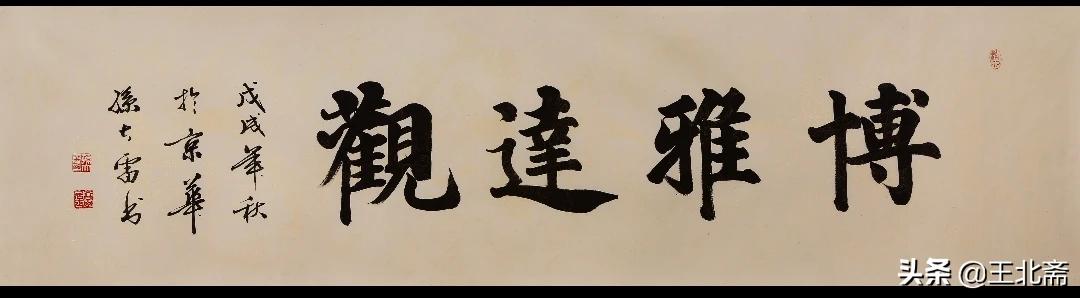 博雅達觀
戊戌年秋
於京華
孫大雷书
头条 @王北斋